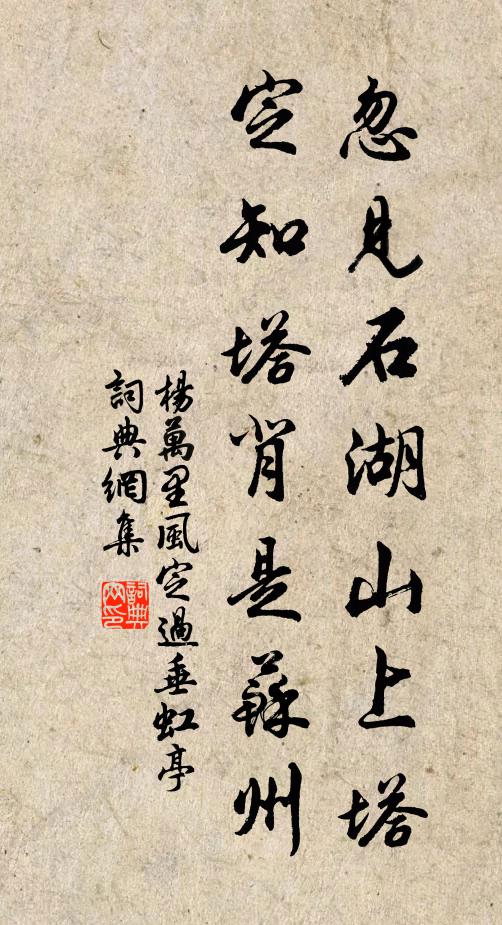 忽見石湖山上塔
定知塔背是蘇州
楊萬里風定過垂虹亭
詞典網集
詞典網印